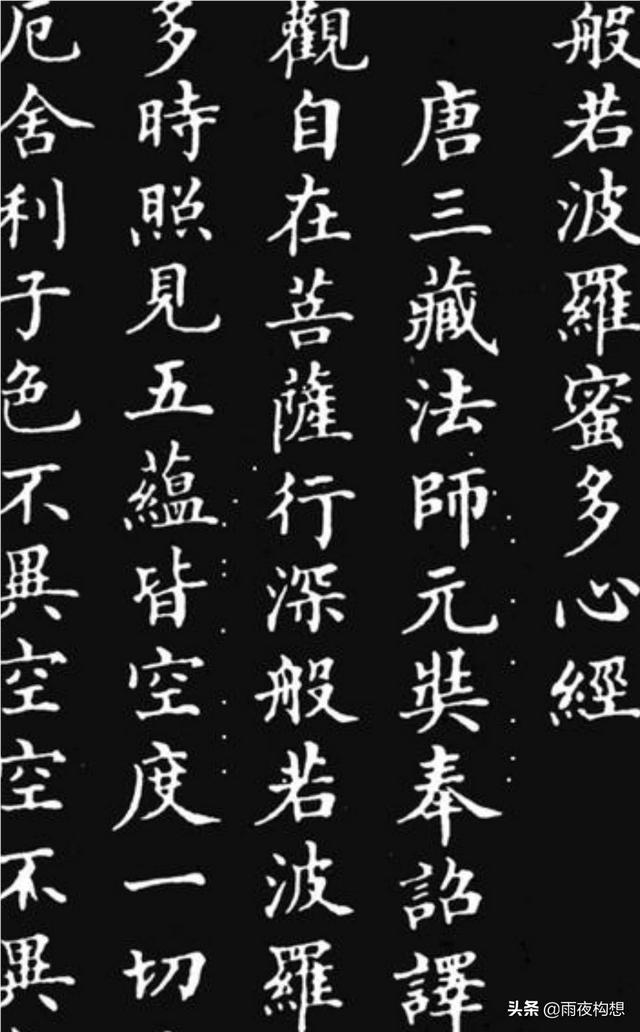 般若波羅蜜多心經
唐三藏法師元奘奉詔譯
觀自在菩薩行深般若波羅
多時照見五蘊皆空度一切
厄舍利子色不異空空不異
头条 @雨夜构想